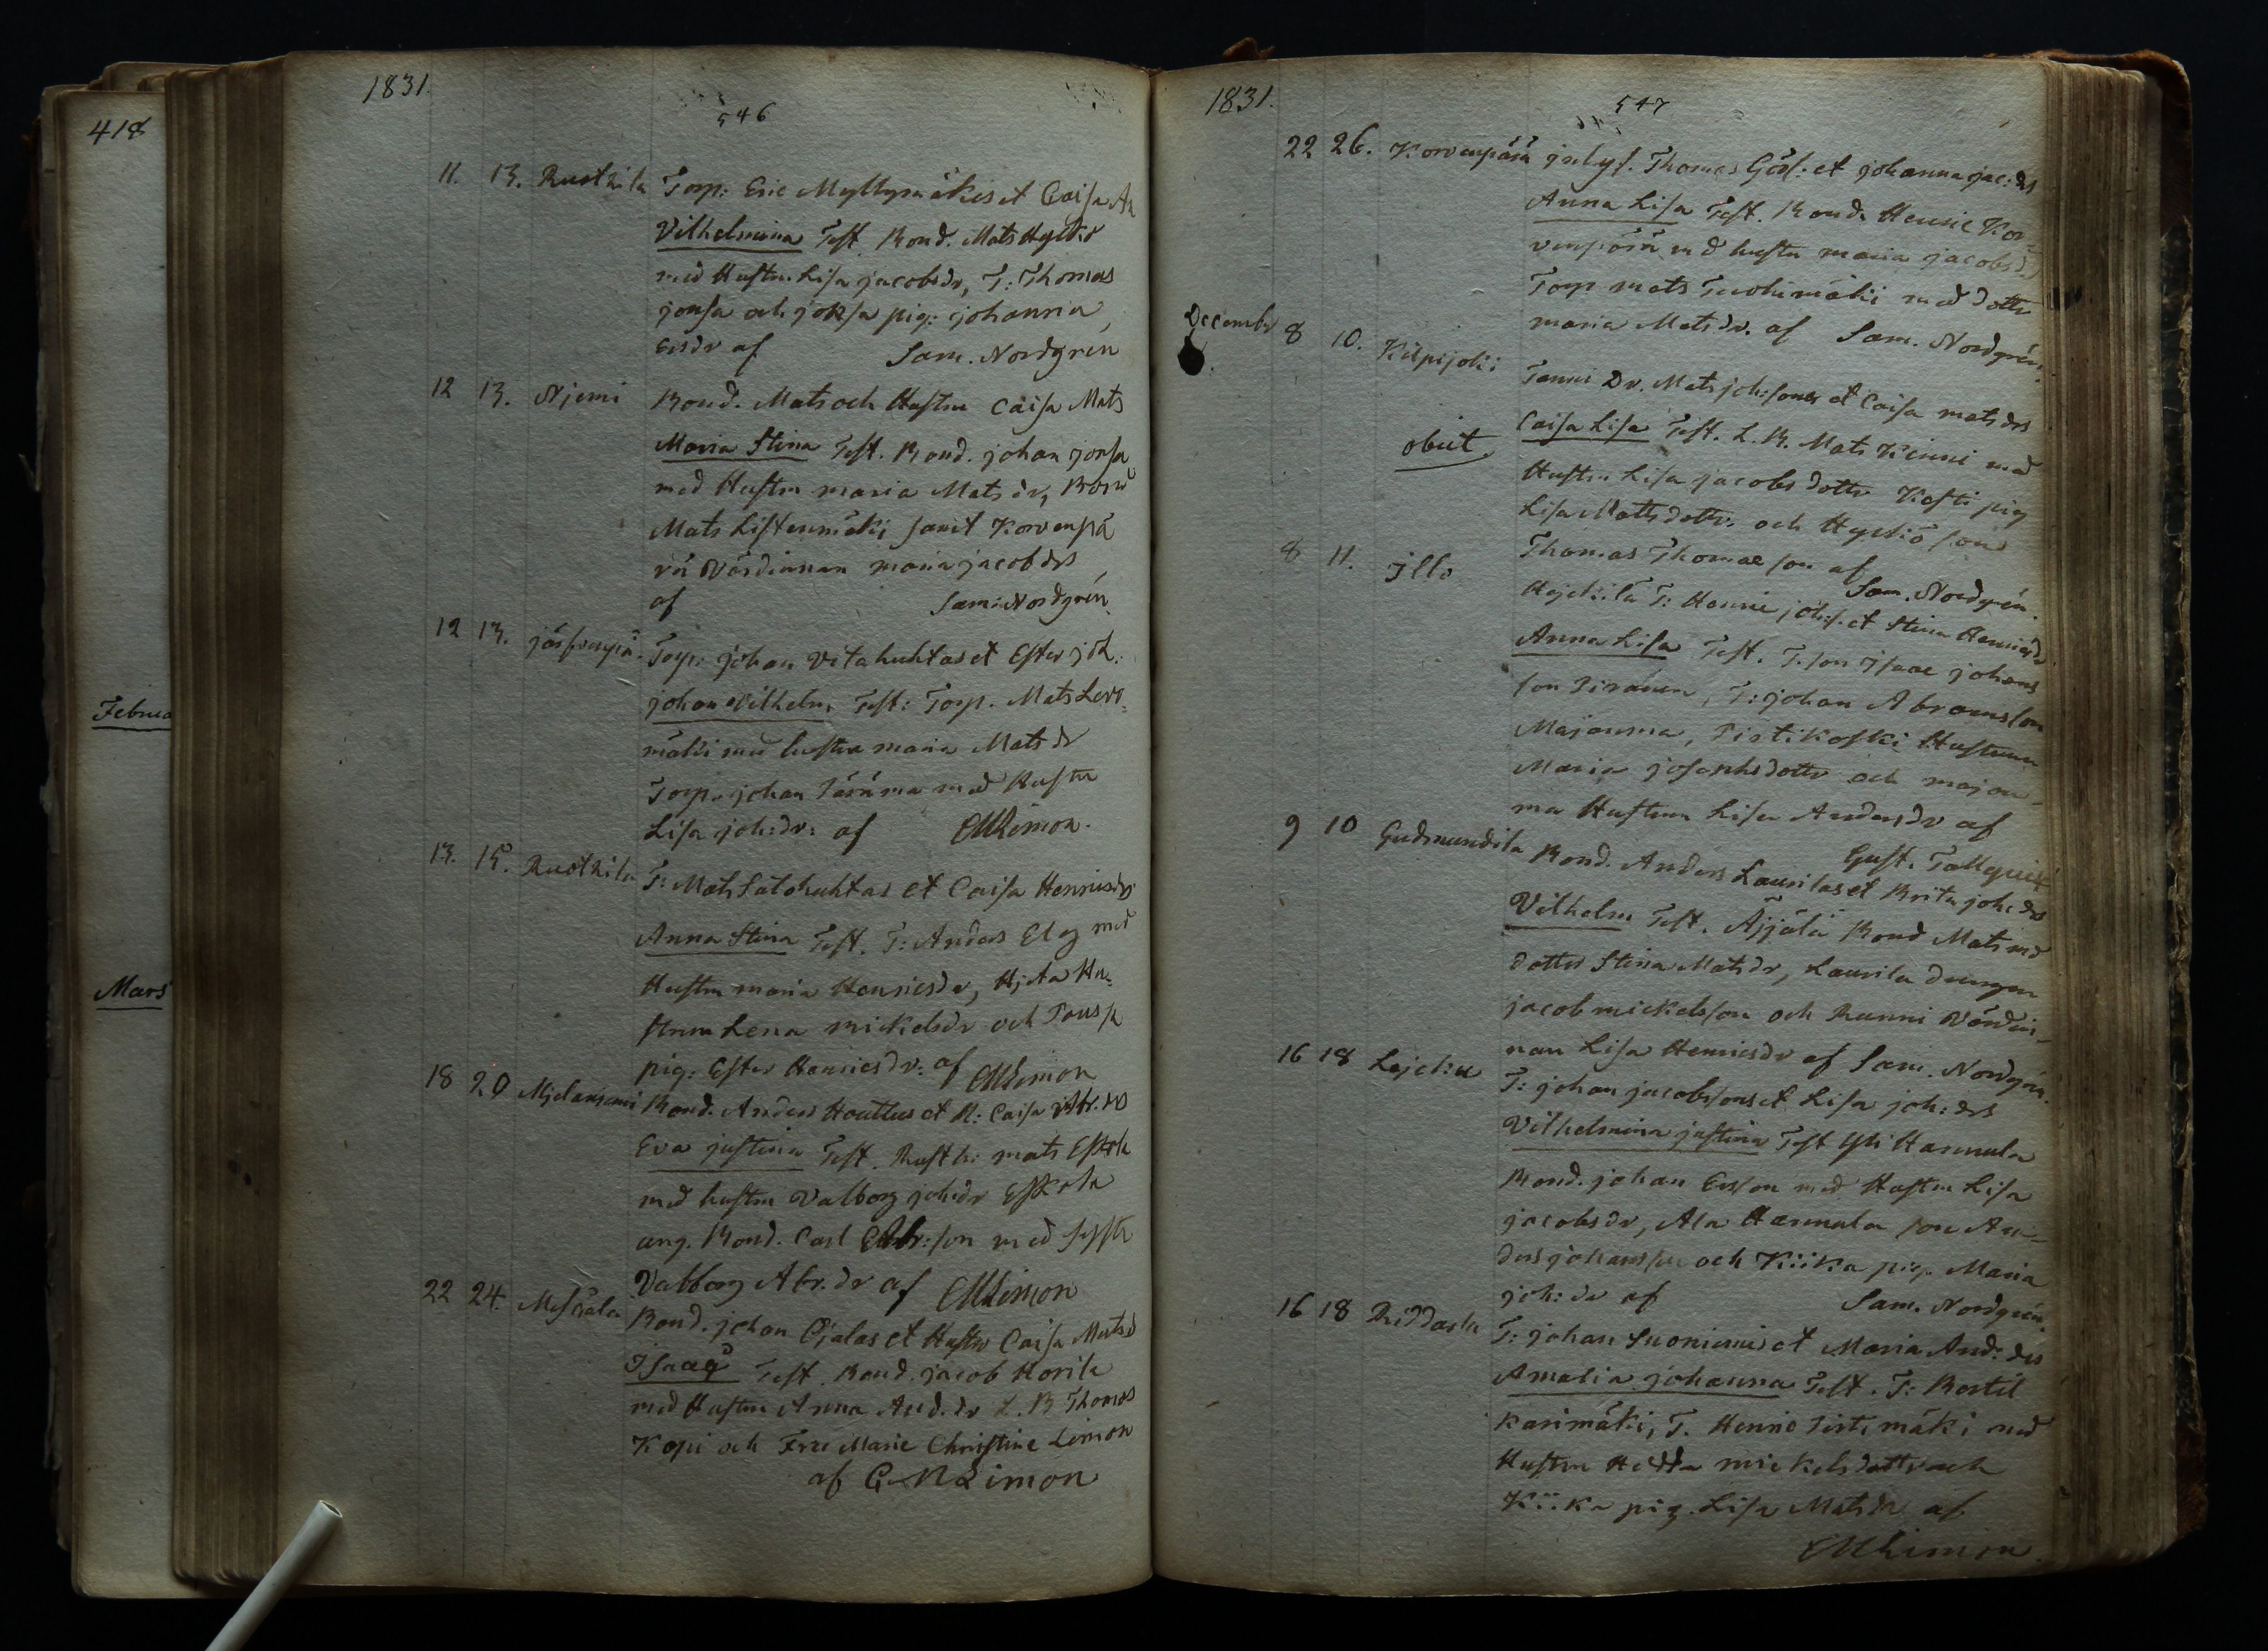 418
Februa
Mars
1831.
546
11. 13. Rustkila Torp: Eric Myllymäkis et Caisa An
Vilhelmina Test. Bond. Mats Hyrkö
med Hustru Lisa jacobsdr, T: Thomas
jonsa och jonsa pig: johanna
Ersdr af Sam. Nordgrén
12 13. Njemi Bond. Mats och Hustru Caisa Mats
Maria Stina Test. Bond. johan jonsa
med Hustru maria Matsdr, Bond
Mats Listenmäki samt Korvenpä
rä Värdinnan maria jacobdrs
af Sam: Nordgrén
12 13. Torp: johan Vitahuhtas et Ester joh:
johan Vilhelm Test: Torp. Mats Levo
mäki med hustru maria Matsdr
Torp. johan med Hustru
Lisa joh:dr: af Limon.
13. 15. Rustkila T: Mats Salohuhtas et Caisa Henricsdrs
Anna Stina Test. T: Anders Elg med
Hustru maria Henricsdr, Hjeta Hu-
strun Lena mickelsdr och
pig: Ester Henricsdr: af Limon
18 20 Bond. Anders Houttus et H: Caisa Abr.drs
Eva justina Test. Rusth: mats Eskola
med hustru Valborg joh:dr Eskola
ung. Bond. Carl Abr:son med syster
Valborg Abr.dr af Limon
22 24. Meskala Bond. johan Ojalas et Hustru Caisa Matsd
Isaac Test. Bond. jacob Horila
med Hustru Anna And.dr L. B Thomas
Kopi och Fru Marie Christine Limon
af G. M Limon
1831.
547
22 26. Korvenpärä inhys. Thomas Görs: et johanna jac:drs
Anna Lisa Test. Bond. Henric Kor-
venpärä med hustru maria jacobsdr
Torp mats Tuohimäki med dotter
maria Matsdr. af Sam. Nordgrén
December 8 10. Kilpijoki Tanni Dr. Mats joh:sons et Caisa matsdrs
obiit Caisa Lisa Test. L. B. Mats Kinni med
Hustru Lisa jacobsdotter Kosti pig
Lisa Mattsdotter och Hyrkiö son
Thomas Thomae son af Sam. Nordgrén.
8 11. jllo T: Henric joh:s. et Stina Henricsdr
Anna Lisa Test. T. son jsaac johans
son Piränen, T: johan Abramsson
Majanma, Pistikoski Hustrun
Maria josephsdotter och majan-
ma Hustrun Lisa Andersdr af
Gust. Tallquist
9 10 Gudmundila Bond. Anders Laurilas et Brita joh:drs
Vilhelm Test. Äijälä Bond Mats med
dotter Stina Matsdr, Laurila drengen
jacob mickelsson och Runni Värdin-
nan Lisa Henricsdr af Sam. Nordgrén.
16 18 T: johan jacobsons et Lisa joh:drs
Vilhelmina justina Test Yli Hannula
Bond. johan Ersson med Hustru Lisa
jacobsdr, Ala Hannula son An-
ders johansson och Kiika pig. Maria
joh:dr af Sam. Nordgrén.
16 18 Riddarla T: johan Suoniemis et Maria And:drs
Amalia johanna Test. T: Bertil
Karimäki, T. Henric Pirtimäki med
Hustru Hedda mickelsdotter och
Kiika pig. Lisa Matsdr af
Limon